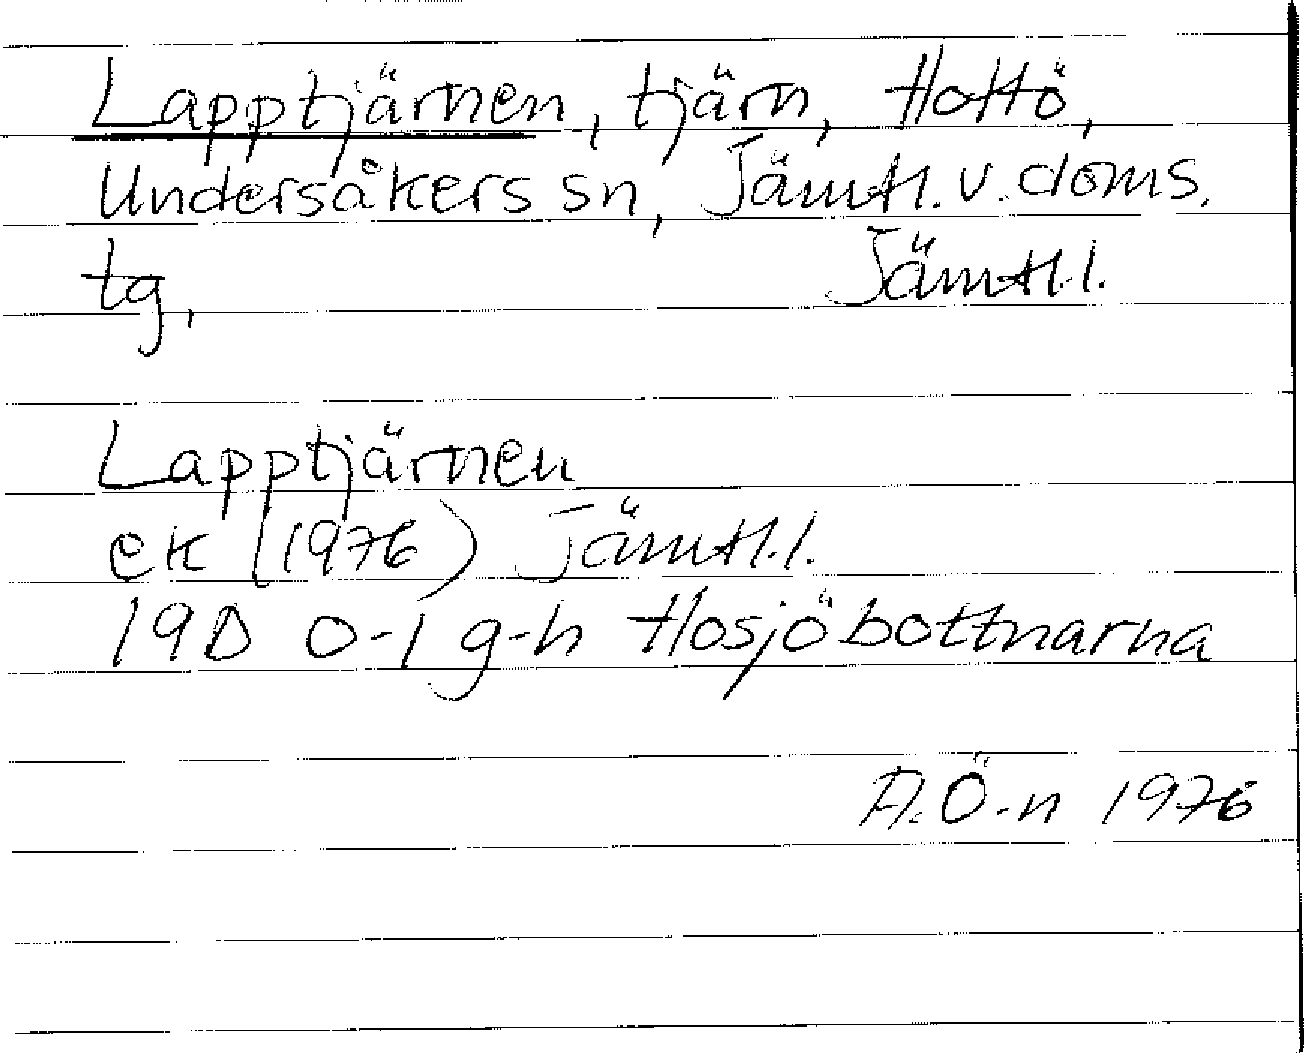 Lapptjärnen, tjärn, Hottö,
Undersåkers sn, Jämtl. v. doms.
tg, Jämtl.l.
Lapptjärnen
ek (1976) Jämtl.l.
19D 0-1 g-h Hosjöbottnarna
A.Ö-n 1976